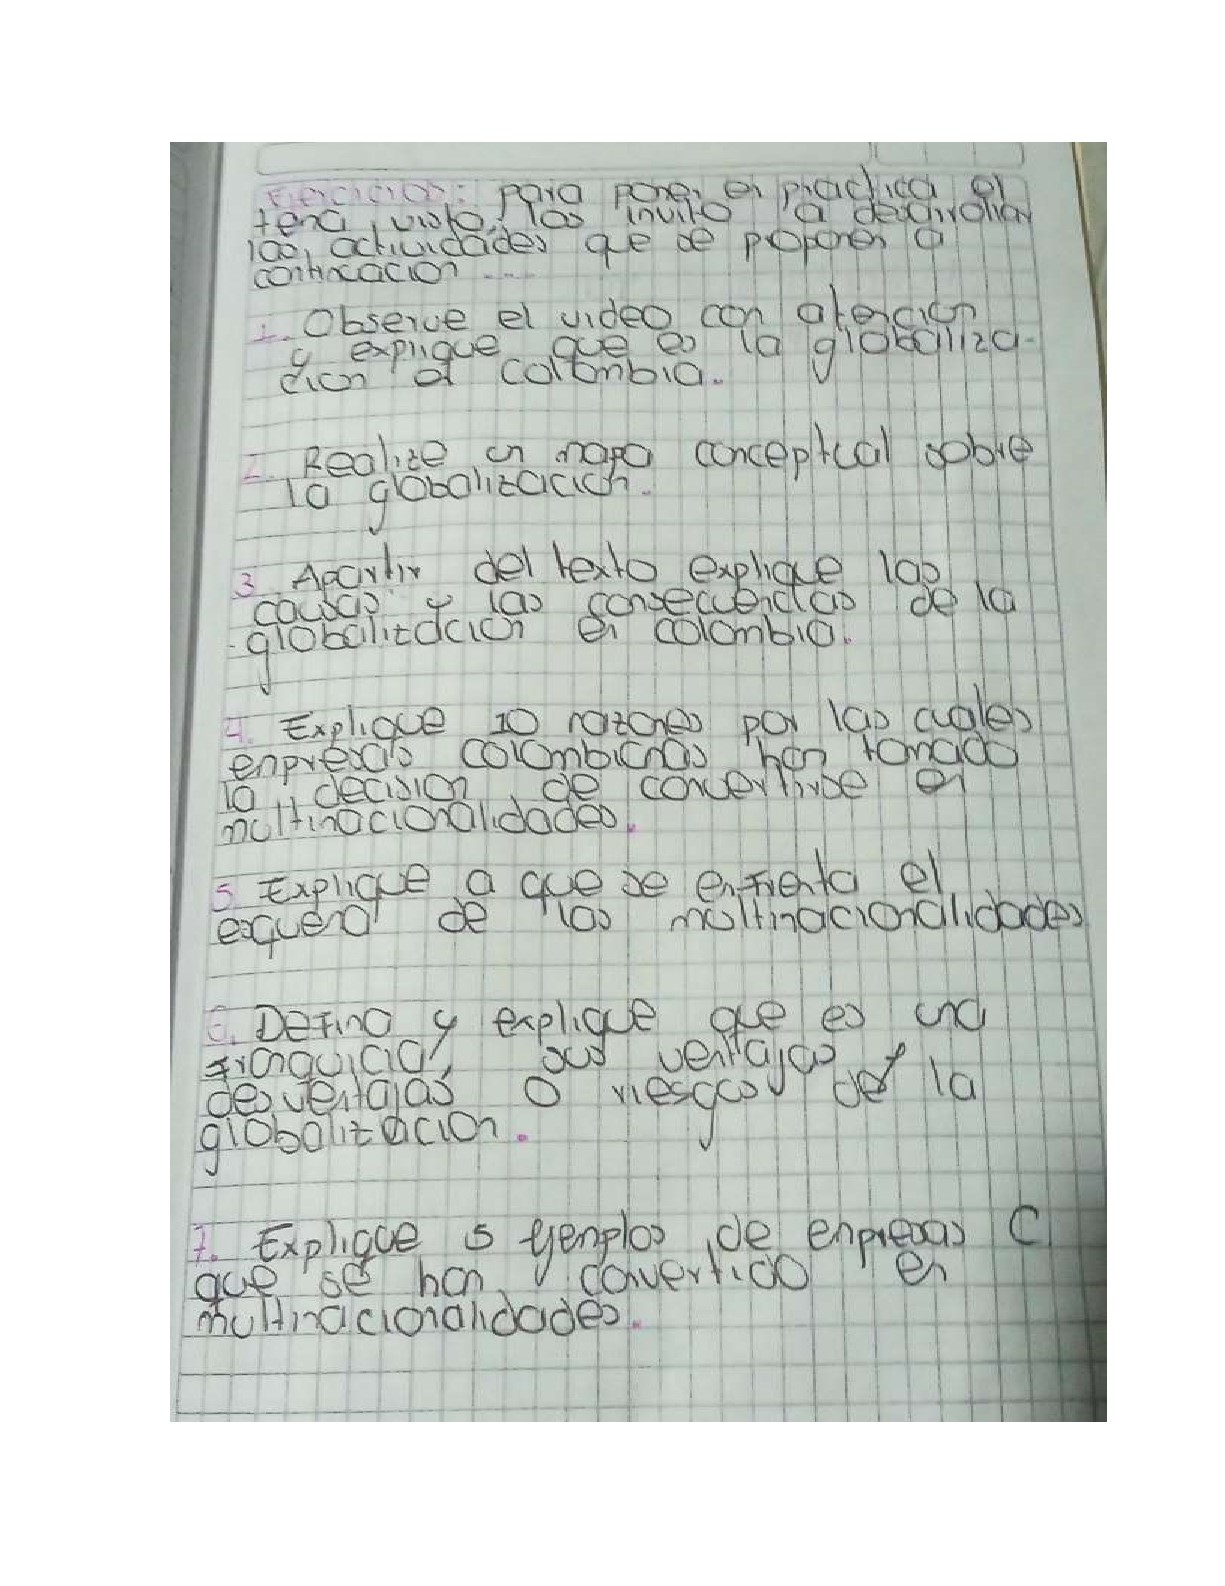 Ejercicios: para poner en practica el
tema visto, los invito a desarrollar
las actividades que se proponen a
continuacion ....
1. Observe el video con atencion
y explique que es la globaliza-
cion en colombia.
2. Realize un mapa conceptual sobre
la globalizacion.
3. Apartir del texto explique las
causas y las consecuencias de la
globalizacion en colombia.
4. Explique 10 razones por las cuales
empresas colombianas han tomado
la decision de convertirse en
multinacionalidades.
5. Explique a que se enfrenta el
esquema de las multinacionalidades
6. Defina y explique que es una
franquicia, sus ventajas y
desventajas o riesgos de la
globalización.
7. Explique 5 ejemplos de empresas C
que se han convertido en
multinacionalidades.